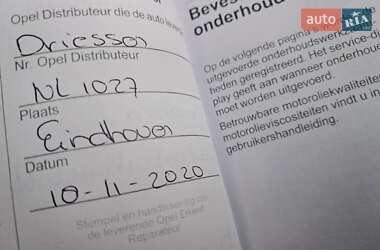 Opel Distributeur die de auto levert
Driessen
Nr. Opel Distributeur
NL 1027
Plaats
Eindhoven
Datum
10-11-2020
Stempel en handtekening van
de leverende Opel Erkend
Reparateur
Beves
onderhoud
Op de volgende pagina
uitgevoerde onderhoudswerkz
heden geregistreerd. Het service-di
play geeft aan wanneer onderhoud
moet worden uitgevoerd.
Betrouwbare motoroliekwaliteiten
motorolieviscositeiten vindt u in
gebruikershandleiding.
auto RIA